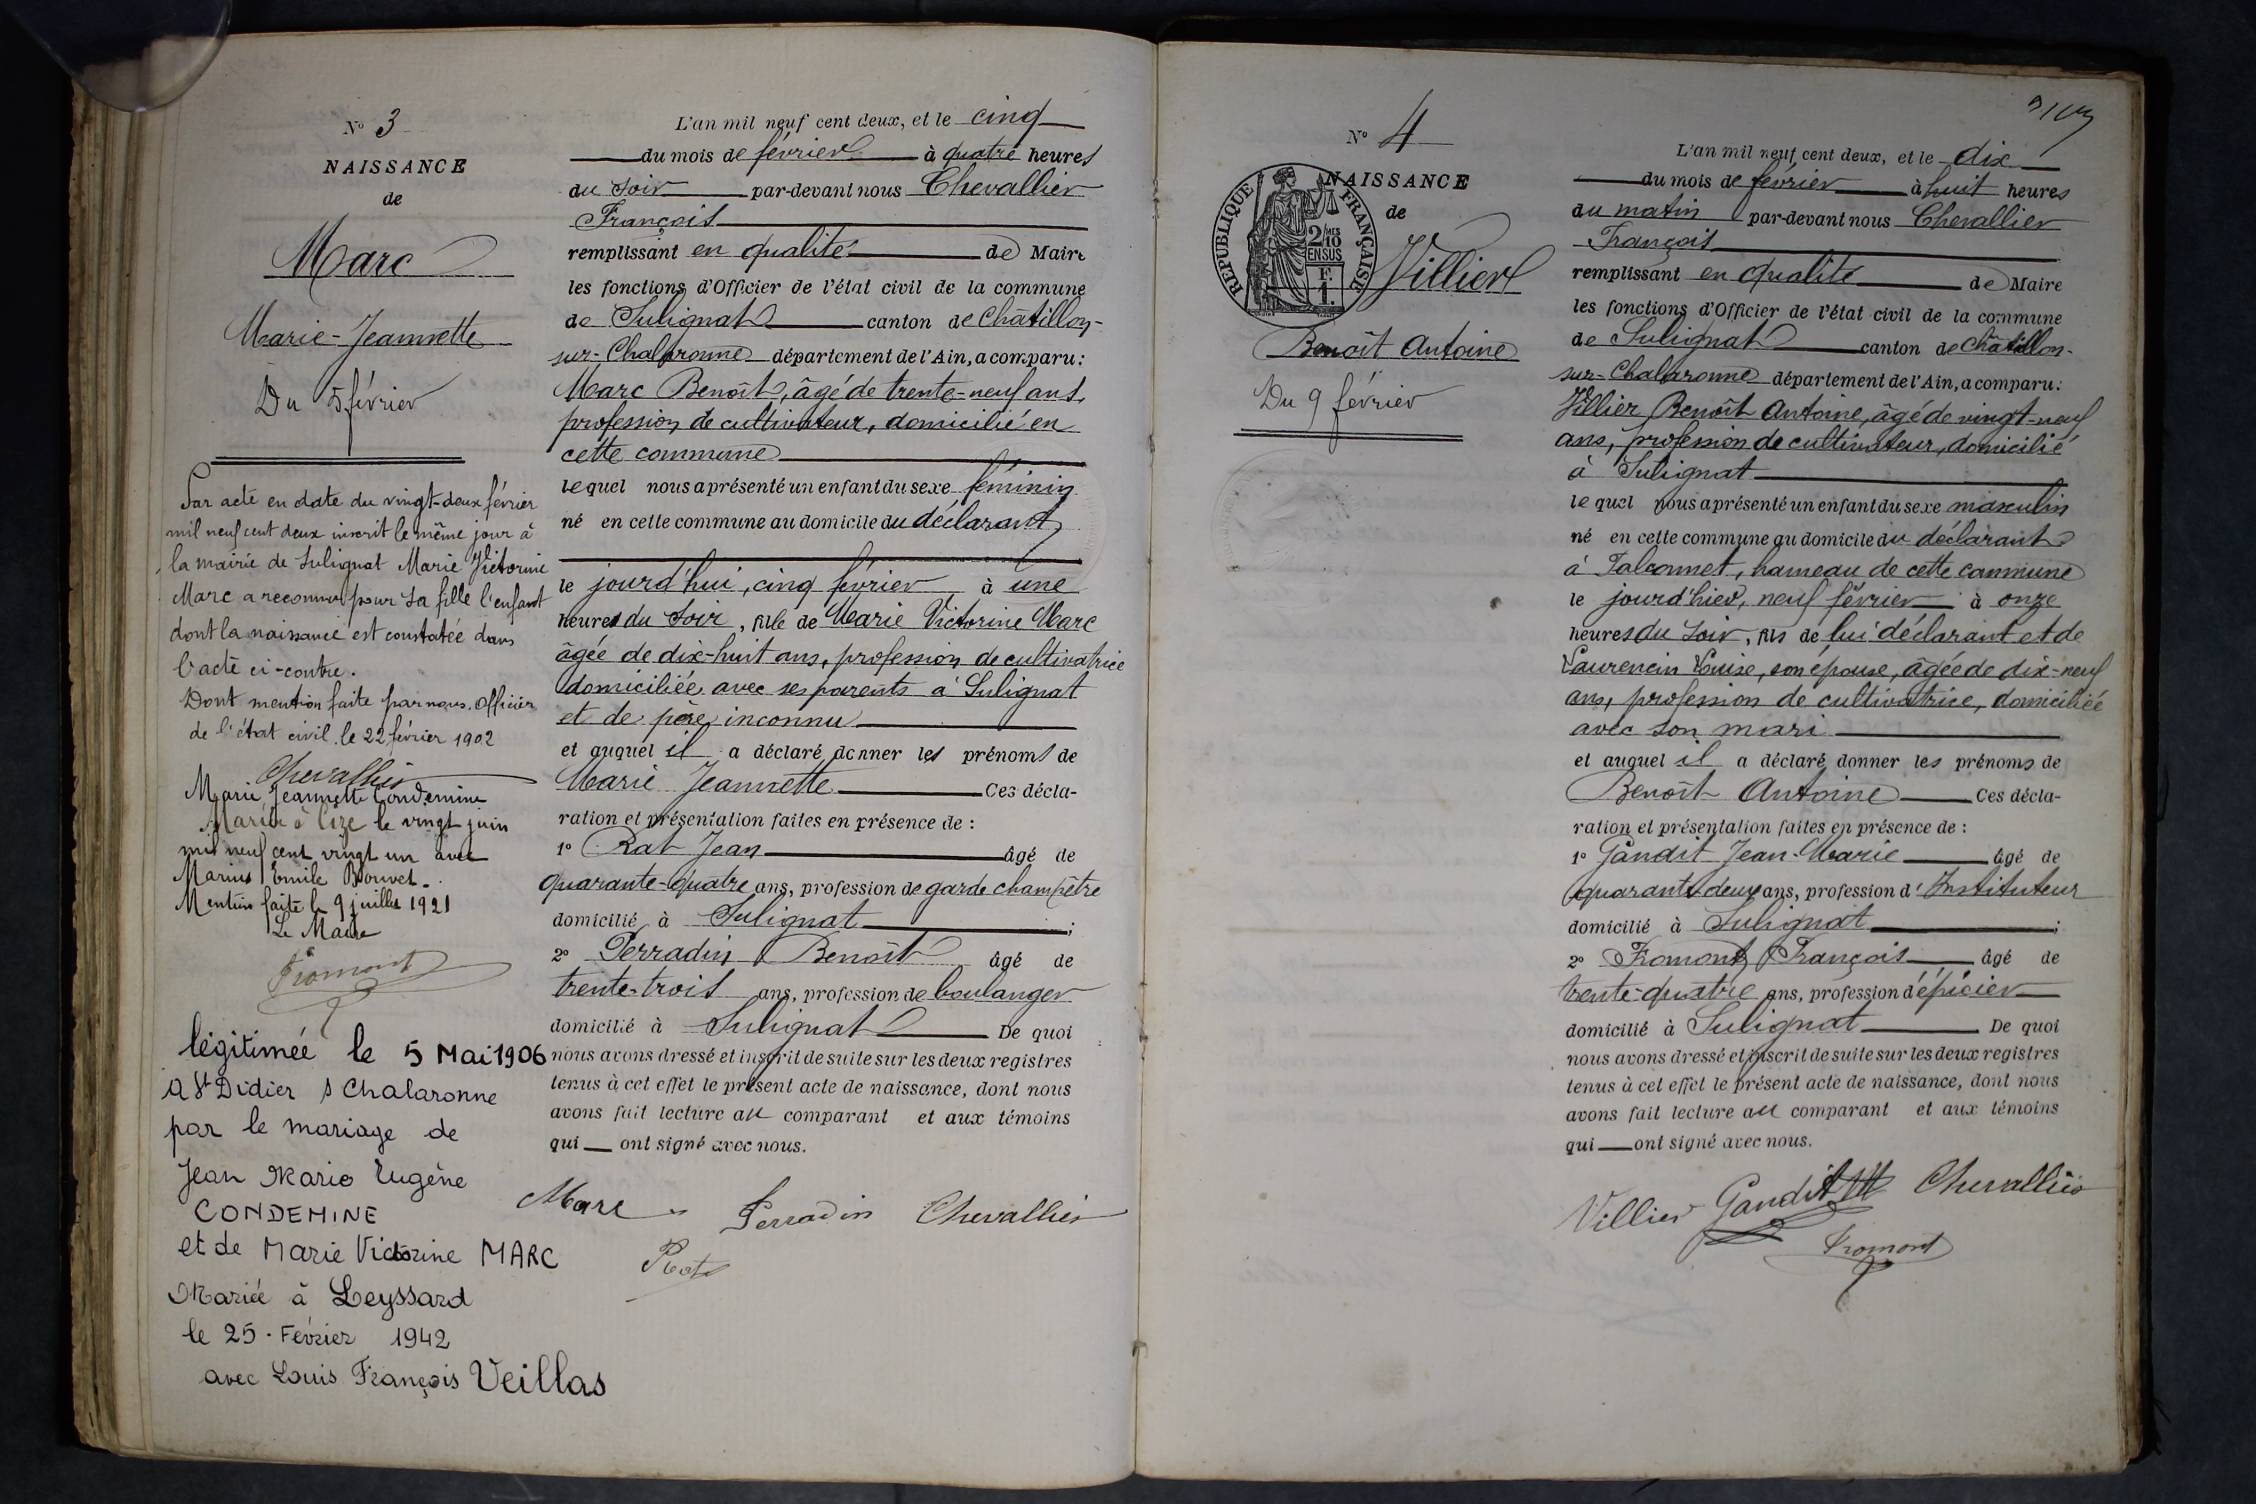 N° 3
NAISSANCE
de
Marc
Marie-Jeannette
Du 5 février
Par acte en date du vingt-deux février
mil neuf cent deux inscrit le même jour à
la mairie de Sulignat Marie Victorine
Marc a reconnu pour sa fille l'enfant
dont la naissance est constatée dans
l'acte ci-contre.
Dont mention faite par nous, officier
de l'état civil, le 22 février 1902
Chevallier
Marie Jeannette Condemine
Mariée à Cize le vingt juin
mil neuf cent vingt un avec
Marius Emile Bouvet.
Mention faite le 9 juillet 1921
Le Maire
Fromont
légitimée le 5 Mai 1906
A St Didier s Chalaronne
par le mariage de
Jean Marie Eugène
CONDEMINE
et de Marie Victorine MARC
Mariée à Leyssard
le 25 - Février 1942
avec Louis François Veillas
L'an mil neuf cent deux, et le cinq
du mois de février à quatre heures
du soir par-devant nous Chevallier
François
remplissant en qualité de Maire
les fonctions d'Officier de l'état civil de la commune
de Sulignat canton de Châtillon-
sur-Chalaronne département de l'Ain, a comparu:
Marc Benoît, âgé de trente-neuf ans,
profession de cultivateur, domicilié en
cette commune
lequel nous a présenté un enfant du sexe féminin
né en cette commune au domicile du déclarant,
le jourd'hui, cinq février à une
heures du soir, fille de Marie Victorine Marc
âgée de dix-huit ans, profession de cultivatrice
domiciliée avec ses parents à Sulignat
et de père inconnu
et auquel il a déclaré donner les prénoms de
Marie Jeannette Ces décla-
ration et présentation faites en présence de :
1° Rat Jean âgé de
quarante-quatre ans, profession de garde champêtre
domicilié à Sulignat ;
2° Perradin Benoît âgé de
trente-trois ans, profession de boulanger
domicilié à Sulignat De quoi
nous avons dressé et inscrit de suite sur les deux registres
tenus à cet effet le présent acte de naissance, dont nous
avons fait lecture au comparant et aux témoins
qui ont signé avec nous.
Marc Perradin Chevallier
Rat
N° 4
NAISSANCE
de
REPUBLIQUE FRANÇAISE
2/10 MES
EN SUS
F.
1.
Villier
Benoît Antoine
Du 9 février
L'an mil neuf cent deux, et le dix
du mois de février à huit heures
du matin par-devant nous Chevallier
François
remplissant en qualité de Maire
les fonctions d'Officier de l'état civil de la commune
de Sulignat canton de Châtillon-
sur-Chalaronne département de l'Ain, a comparu:
Villier Benoît Antoine, âgé de vingt-neuf
ans, profession de cultivateur, domicilié
à Sulignat
lequel nous a présenté un enfant du sexe masculin
né en cette commune au domicile du déclarant
à Falconnet, hameau de cette commune
le jourd'hier, neuf février à onze
heures du soir, fils de lui déclarant et de
Laurencin Louise, son épouse, âgée de dix-neuf
ans, profession de cultivatrice, domiciliée
avec son mari
et auquel il a déclaré donner les prénoms de
Benoît Antoine Ces décla-
ration et présentation faites en présence de :
1° Gandit Jean-Marie âgé de
quarante-deux ans, profession d'Instituteur
domicilié à Sulignat ;
2° Fromont François âgé de
trente-quatre ans, profession d'épicier
domicilié à Sulignat De quoi
nous avons dressé et inscrit de suite sur les deux registres
tenus à cet effet le présent acte de naissance, dont nous
avons fait lecture au comparant et aux témoins
qui ont signé avec nous.
Villier Gandit Chevallier
Fromont